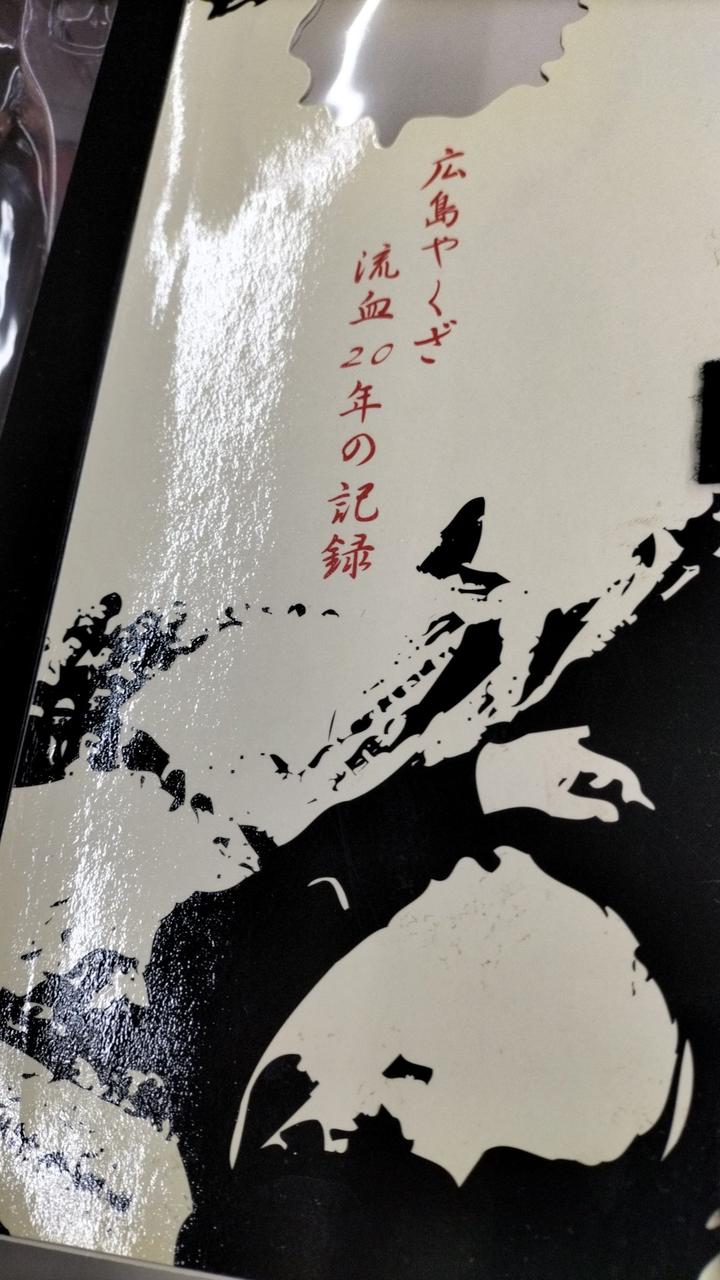 広島やくざ
流血20年の記録